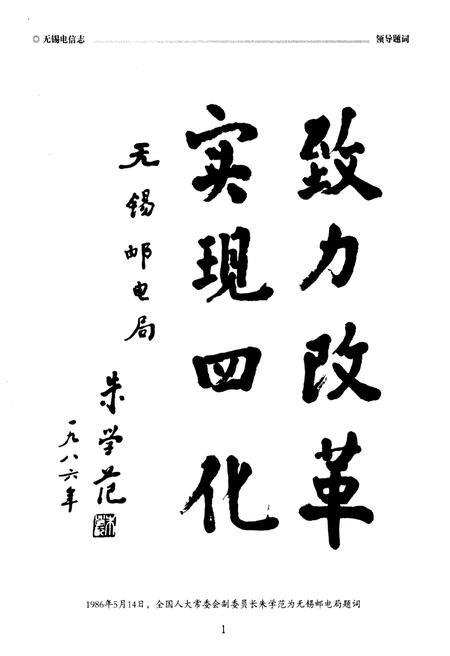 ◎ 无锡电信志
领导题词
致力改革
实现四化
无锡邮电局
朱学范
一九八六年
1986年5月14日，全国人大常委会副委员长朱学范为无锡邮电局题词
1